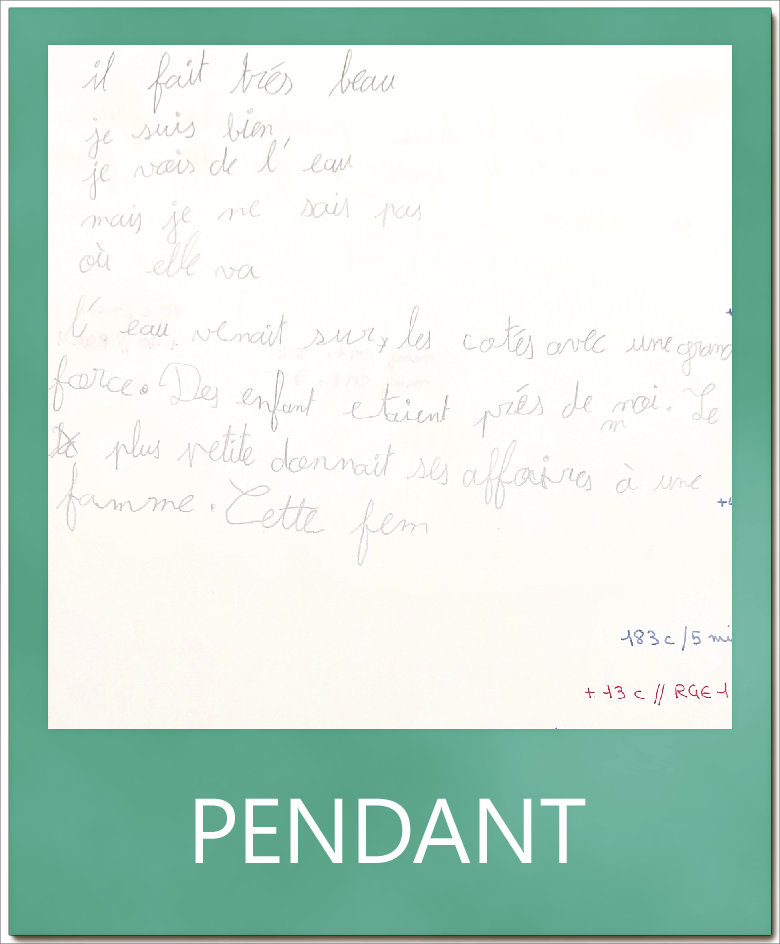 il fait trés beau
je suis bien,
je vois de l'eau
mais je ne sais pas
où elle va
l'eau venait sur les cotés avec une grand
force. Des enfant etaient prés de moi. Le
m
plus petite donnait ses affaires à une
famme. Cette fem
+
183 c / 5 mi
+ 13 c // RGE 1
PENDANT